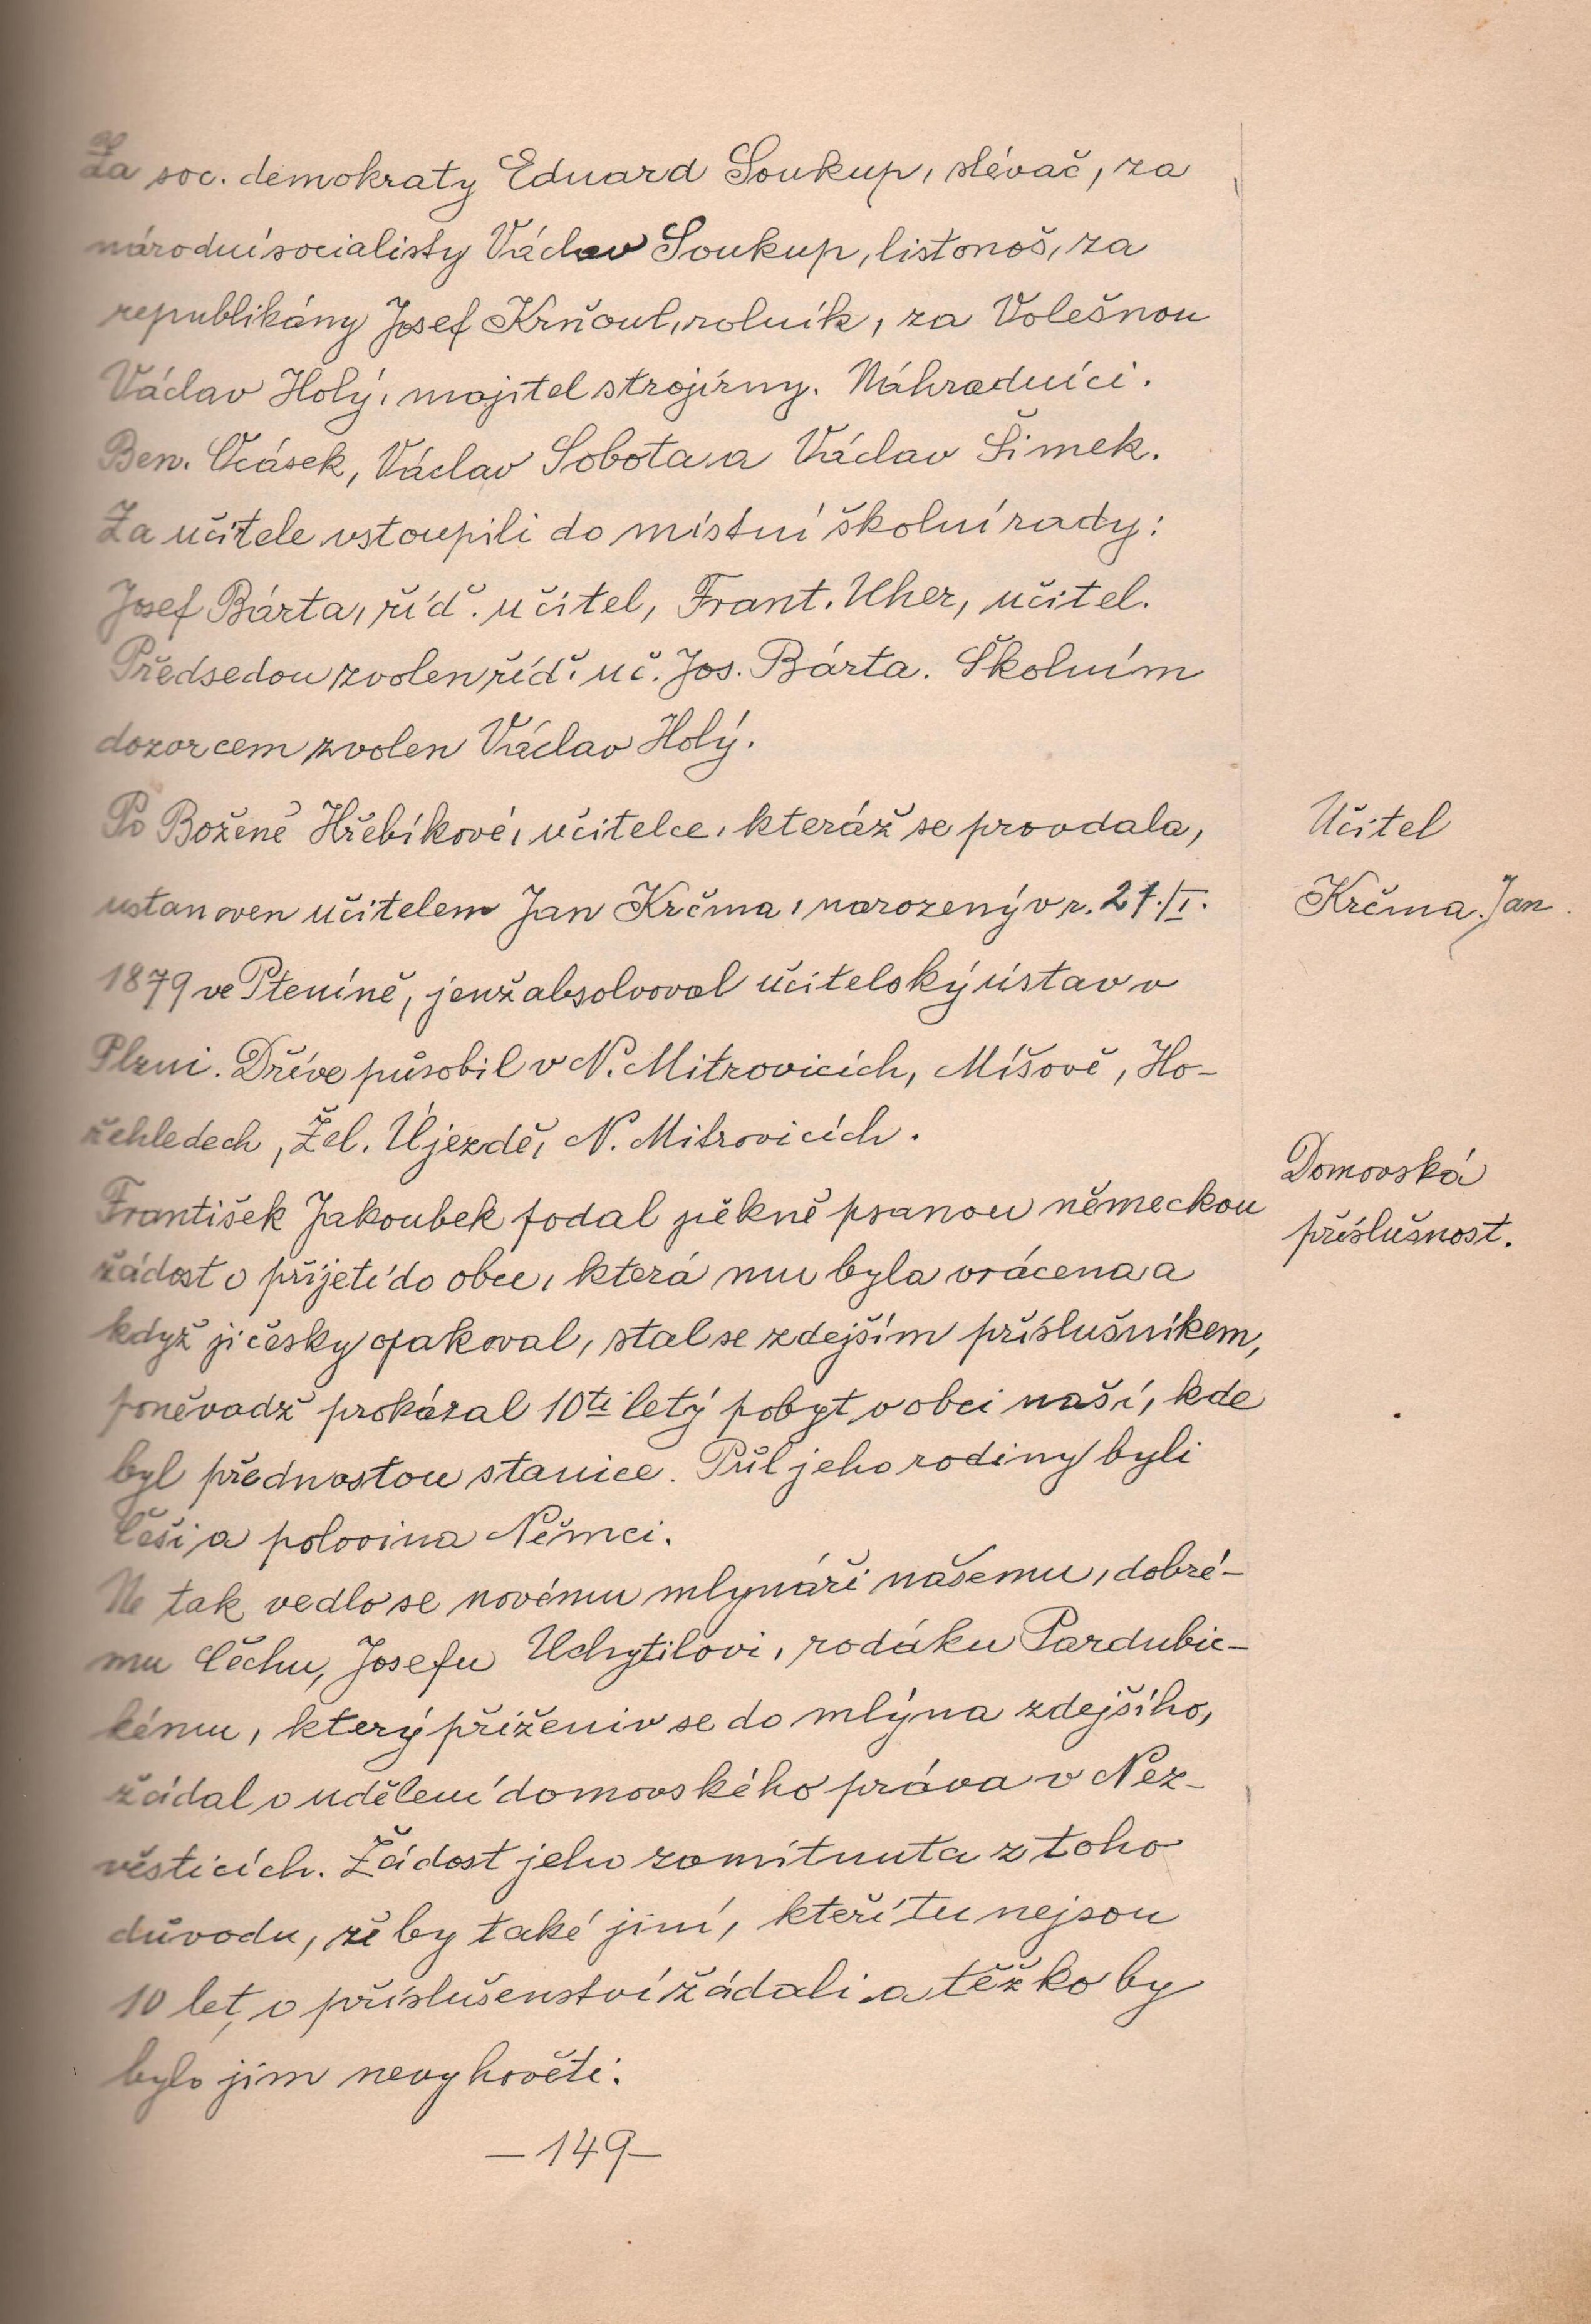 Za soc. demokraty Eduard Soukup, slévač, za
národní socialisty Václav Soukup, listonoš, za
republikány Josef Krňoul, rolník, za Volešnou
Václav Holý, majitel strojírny. Náhradníci.
Ben. Ocásek, Václav Sobota a Václav Šimek.
Za učitele vstoupili do místní školní rady:
Josef Bárta, říd. učitel, Frant. Uher, učitel.
Předsedou zvolen říd. uč. Jos. Bárta. Školním
dozorcem zvolen Václav Holý.
Po Boženě Hřebíkové, učitelce, kteráž se provdala,
ustanoven učitelem Jan Krčma, narozený v r. 27./I.
1879 ve Pteníně, jenž absolvoval učitelský ústav v
Plzni. Dříve působil v N. Mitrovicích, Míšově, Ho-
řehledech, Žel. Újezdě, N. Mitrovicích.
František Jakoubek podal pěkně psanou německou
žádost o přijetí do obce, která mu byla vrácena a
když ji česky opakoval, stal se zdejším příslušníkem,
poněvadž prokázal 10ti letý pobyt v obci naší, kde
byl přednostou stanice. Půl jeho rodiny byli
Češi a polovina Němci.
Ne tak vedlo se novému mlynáři našemu, dobré-
mu Čechu, Josefu Uchytilovi, rodáku Pardubic-
kému, který přiženiv se do mlýna zdejšího,
žádal o udělení domovského práva v Nez-
věsticích. Žádost jeho zamítnuta z toho
důvodu, že by také jiní, kteří tu nejsou
10 let, o příslušenství žádali a těžko by
bylo jim nevyhověti.
- 149 -
Učitel
Krčma Jan.
Domovská
příslušnost.